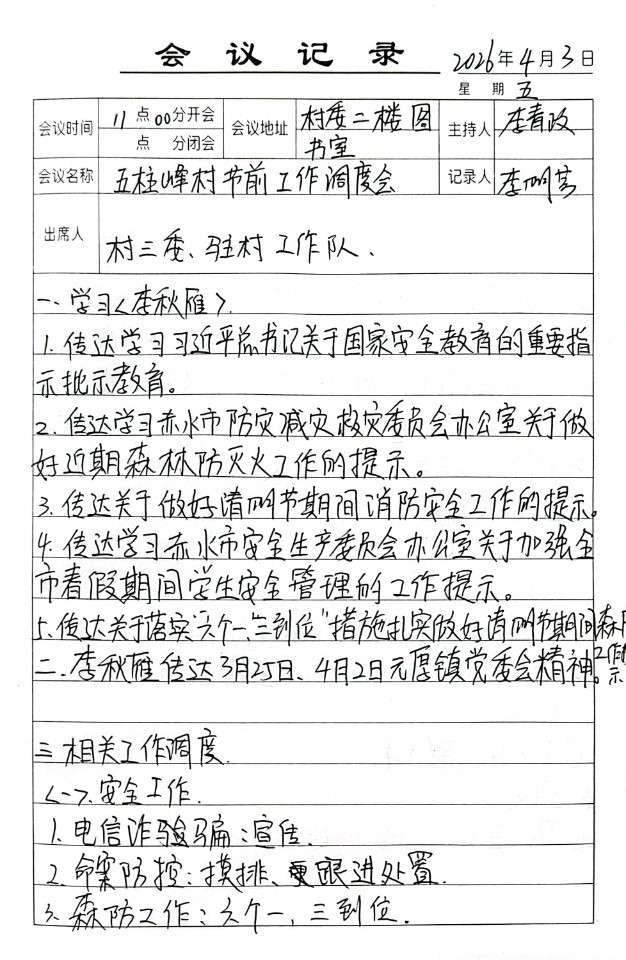 会议记录
2026年4月3日
星期五
会议时间 11点00分开会 会议地址 村委二楼图书室 主持人 李青政
点 分闭会
会议名称 五柱峰村节前工作调度会 记录人 李明芸
出席人 村三委、驻村工作队、
一、学习<李秋雁>.
1. 传达学习习近平总书记关于国家安全教育的重要指
示批示教育。
2. 传达学习赤水市防灾减灾救灾委员会办公室关于做
好近期森林防灭火工作的提示。
3. 传达关于做好清明节期间消防安全工作的提示。
4. 传达学习赤水市安全生产委员会办公室关于加强全
市春假期间学生安全管理的工作提示。
5. 传达关于落实“六个一、三到位”措施扎实做好清明节期间森
工作
示
二、李秋雁传达3月25日、4月2日元厚镇党委会精神。
三 相关工作调度.
<一>. 安全工作.
1. 电信诈骗:宣传.
2. 命案防控:摸排、跟进处置.
3. 森防工作:六个一,三到位.